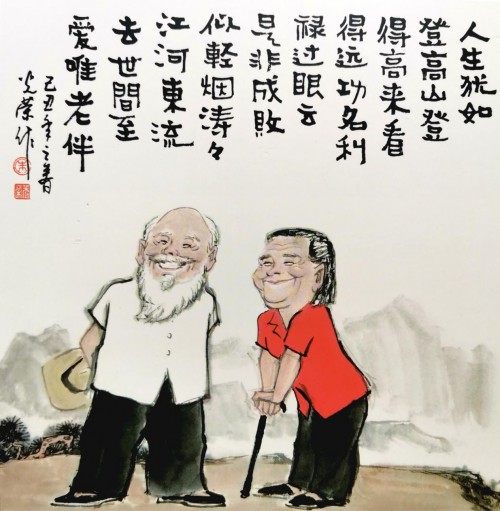 人生犹如
登高山登
得高来看
得远功名利
禄过眼云
是非成败
似輕烟涛々
江河東流
去世間至
愛唯老伴
己丑年之春
光榮作